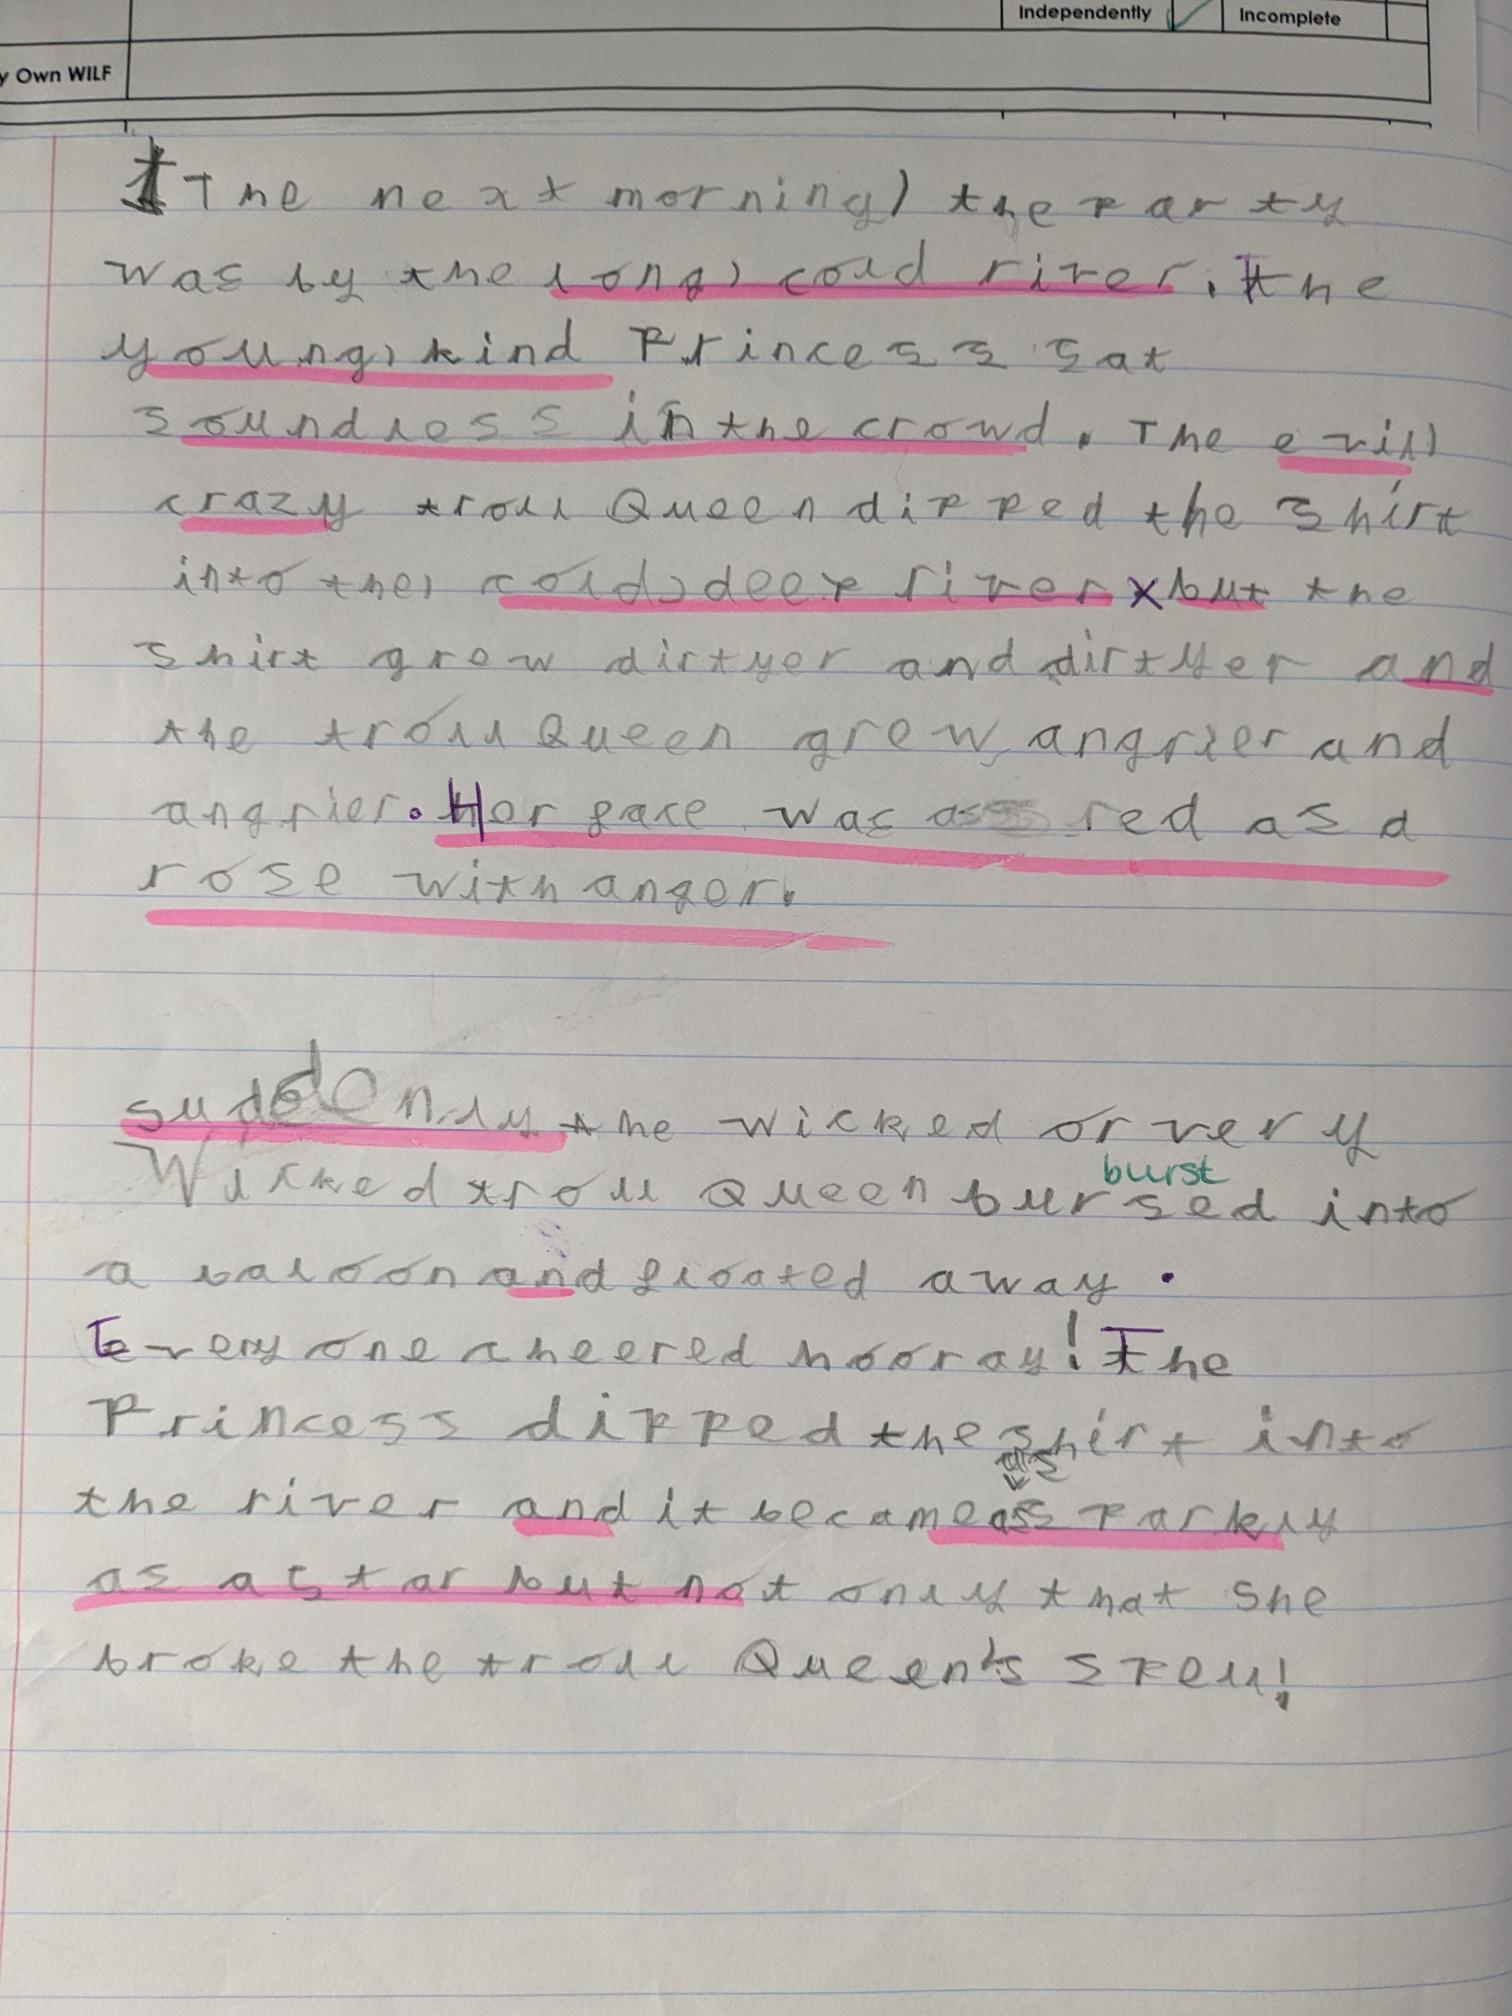 Independently ✓ Incomplete
y Own WILF
The next morning, the party
was by the long, cold river. The
young, kind Princess sat
soundless in the crowd. The evil,
crazy troll Queen dipped the shirt
into the, cold, deep river x but the
shirt grow dirtyer and dirtyer and
the troll Queen grew angrier and
angrier. Her face was as red as a
rose with anger.
suddenly the wicked or very
Wicked troll Queen bursed into
burst
a baloon and floated away.
Every one cheered hooray! The
Princess dipped the shirt into
the river and it became as sparkly
as a star but not only that she
broke the troll Queen's spell!